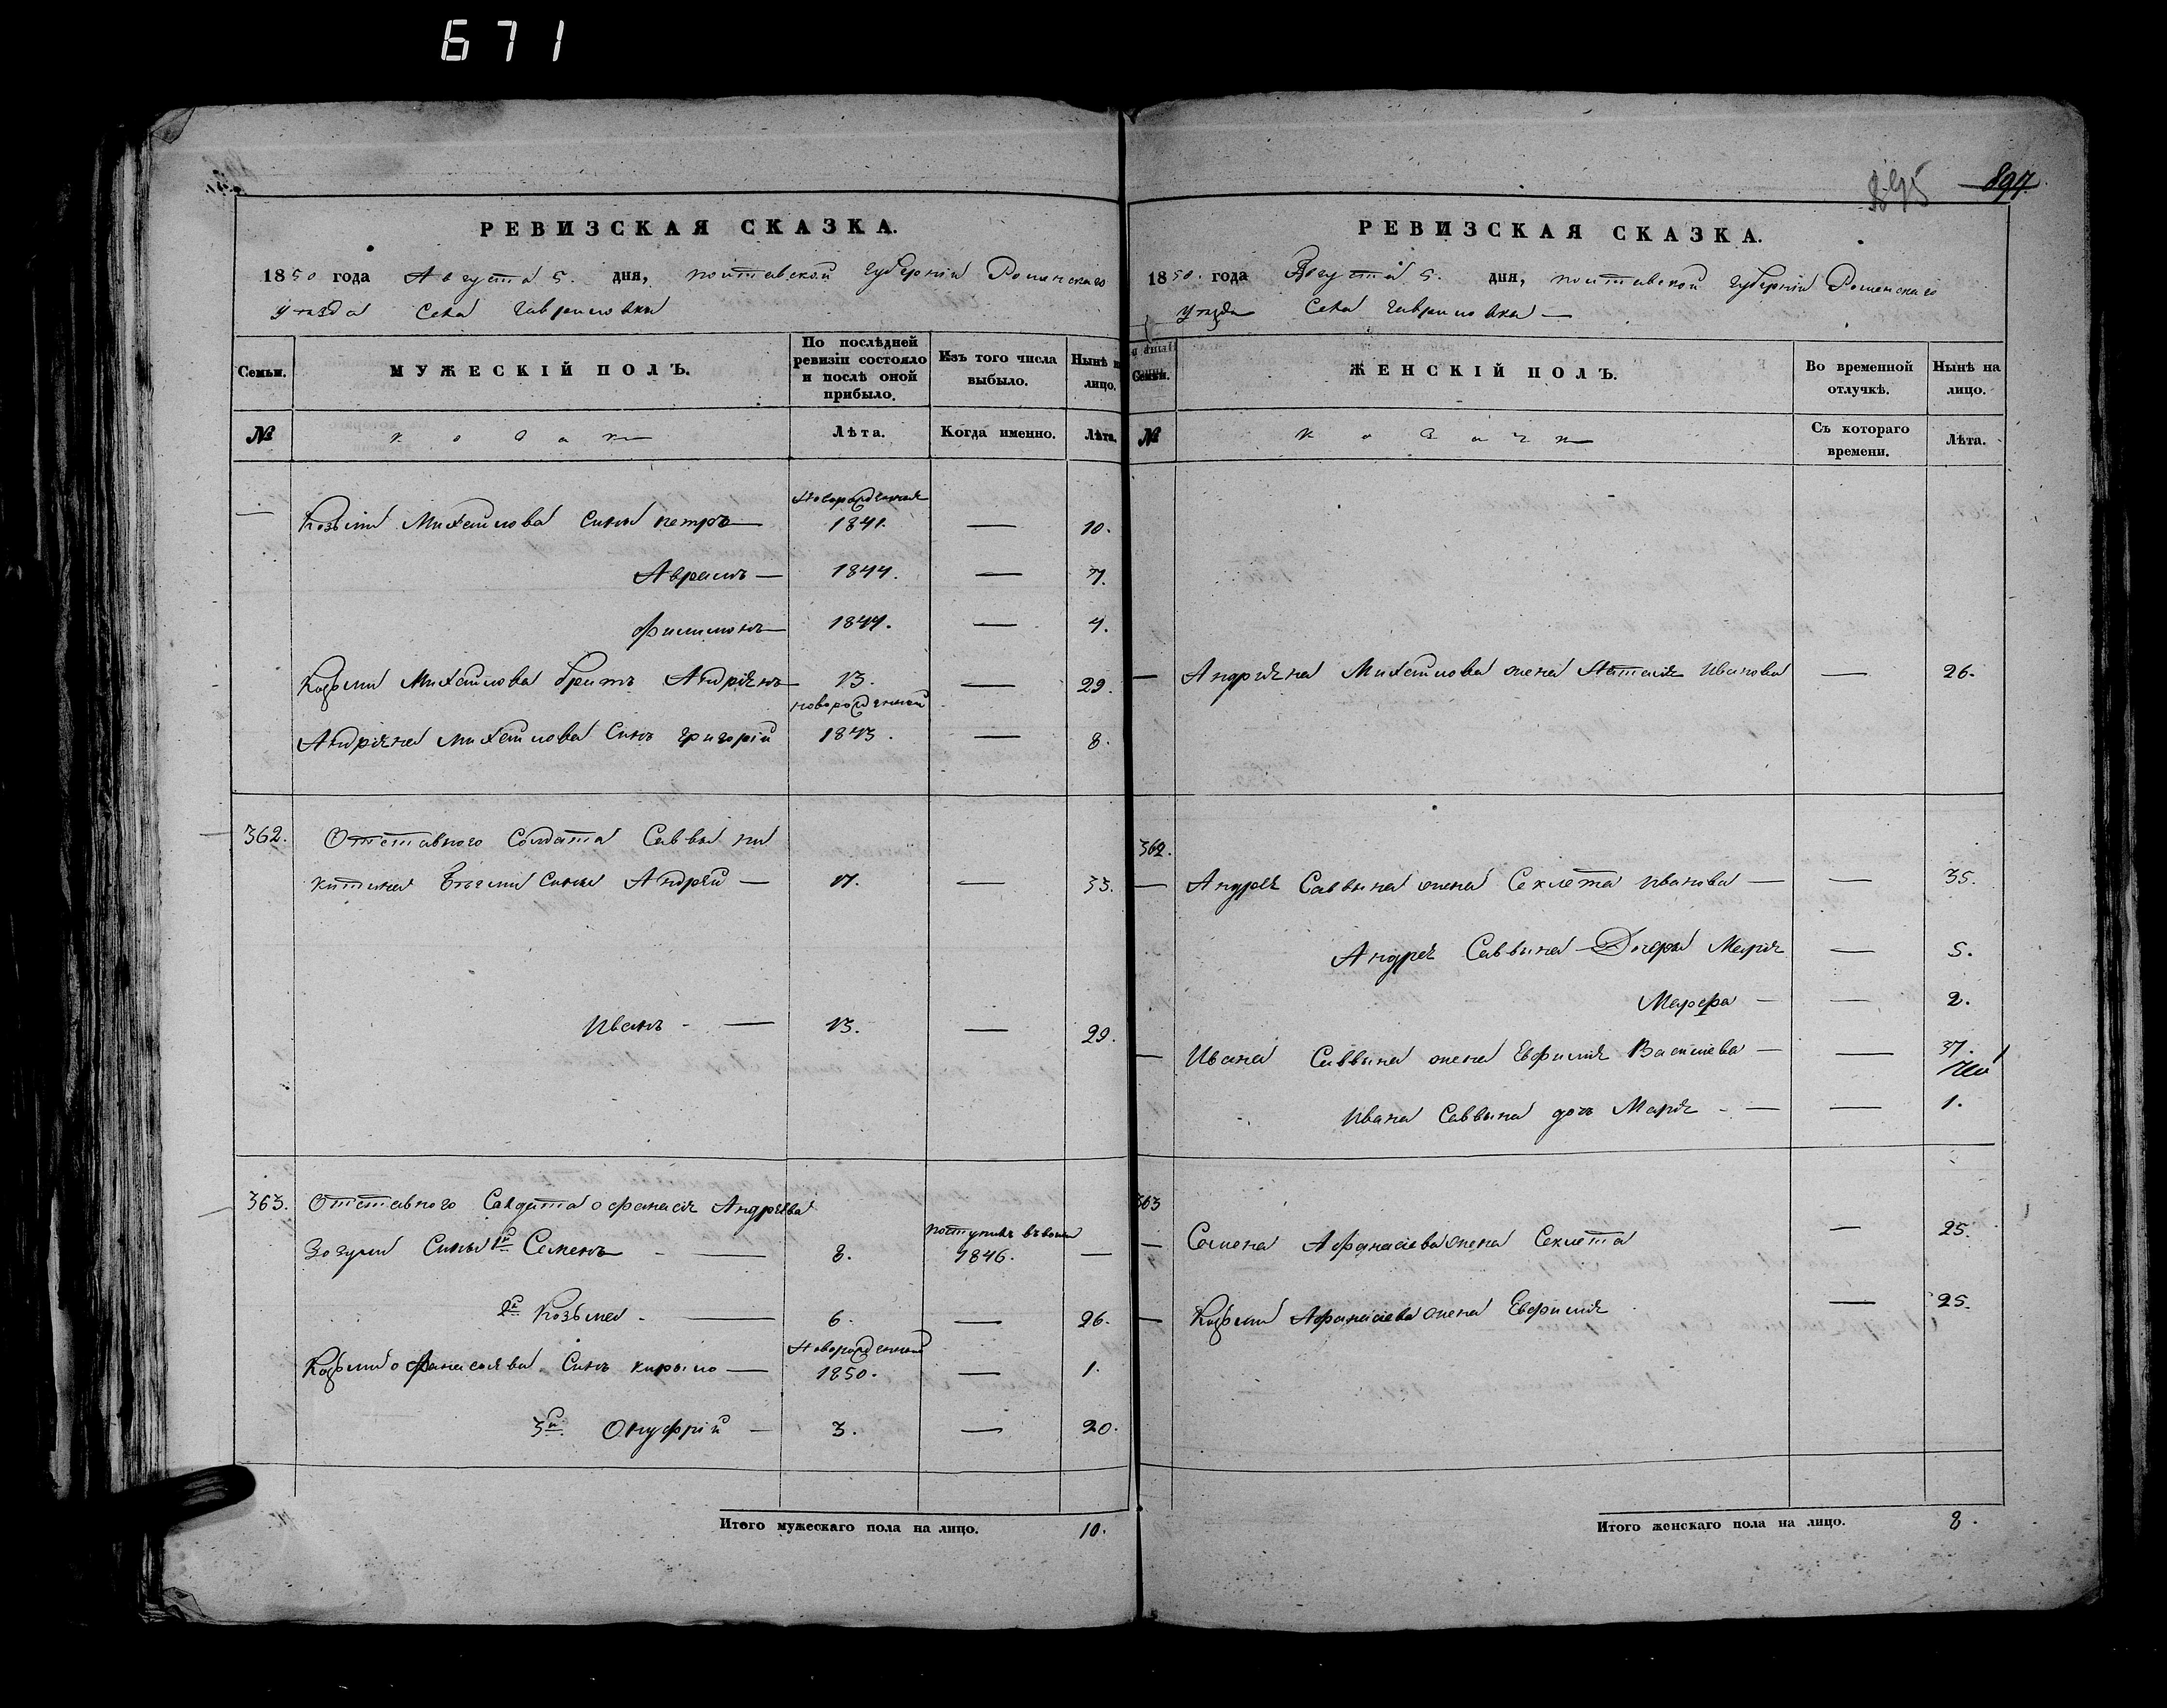 671
895 897
РЕВИЗСКАЯ СКАЗКА.
1850 года Августа 5. дня, Полтавской губерніи Роменскаго
уезда Села Гавриловки
Семьи. МУЖЕСКІЙ ПОЛЪ. По послѣдней ревизіи состояло и послѣ оной прибыло. Изъ того числа выбыло. Нынѣ на лицо.
№ Козаки Лѣта. Когда именно. Лѣта.
— Козьмы Михайлова сыны Петръ — новорожденный 1841. — 10.
Аврамъ — 1844. — 7.
Филимонъ — 1847. — 4.
Козьмы Михайлова братъ Андріянъ 13. — 29.
Андріяна Михайлова сынъ Григорій новорожденный 1843. — 8.
362. Отставного Солдата Саввы Ни
китина сыны Андрей — 17. — 33.
Иванъ — 13. — 29.
363. Отставного Солдата Офанасія Андрѣева
сыны 1й Семенъ — 8. поступилъ 1846. —
2й Козьма — 6. — 26.
Козьмы Офанасіева сынъ Кирыло — новорожденный 1850. — 1.
3й Онуфрій — 3. — 20.
Итого мужескаго пола на лицо. 10.
РЕВИЗСКАЯ СКАЗКА.
1850. года Августа 5. дня, Полтавской губерніи Роменскаго
уезда Села Гавриловки —
Семьи. ЖЕНСКІЙ ПОЛЪ. Во временной отлучкѣ. Нынѣ на лицо.
№ Козачки Съ котораго времени. Лѣта.
— Андріяна Михайлова жена Наталія Иванова — 26.
362.
— Андрея Саввына жена Секлета Иванова — — 35.
Андрея Саввына Дочеры Марія — 5.
Марфа — — 2.
— Ивана Саввына жена Евфимія Василіева — — 37.
Ивана Саввына дочь Марія — — 1.
363
— Семена Афанасіева жена Секлета — 25.
— Козьмы Афанасіева жена Евфимія — 25.
Итого женскаго пола на лицо. 8.